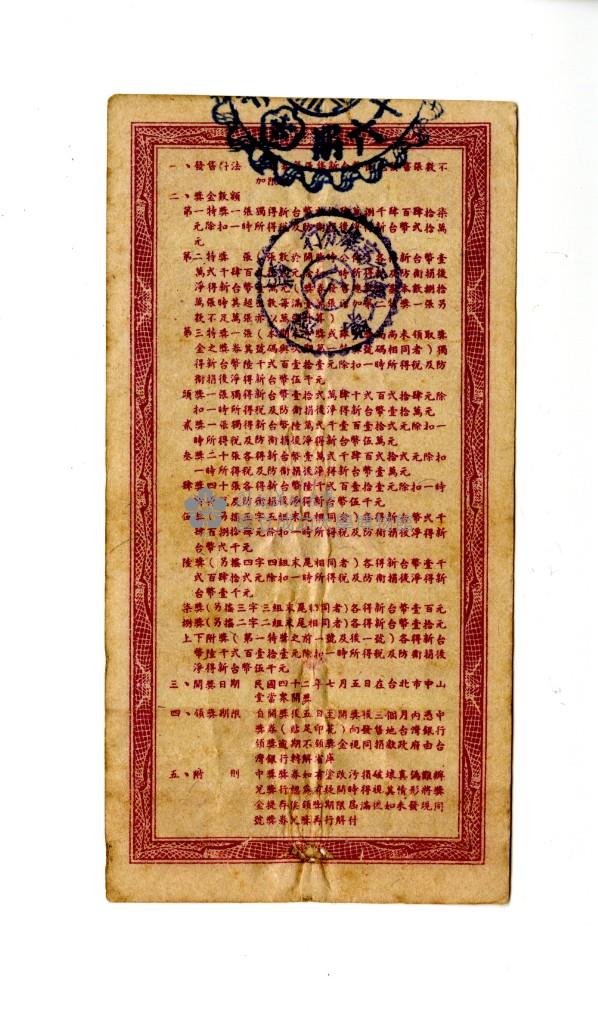 六期
一、發售辦法
張數不
加限
二、獎金數額
第一特獎一張獨得新台幣 萬捌千肆百肆拾柒
元除扣一時所得稅及防衛捐後 得新台幣弍拾萬
元
第二特獎 張 各 新台幣壹
萬弍千肆百 時所得稅及防衛捐後
淨得新台幣 萬元 數捌拾
萬張時其超 獎一張另
數不足萬張亦以萬
第三特獎一張 尚未領取獎
金之獎券其號碼與 號碼相同者）獨
得新台幣陸千弍百壹拾壹元除扣一時所得稅及防
衛捐後淨得新台幣伍千元
頭獎一張獨得新台幣壹拾弍萬肆千弍百弍拾肆元除
扣一時所得稅及防衛捐後淨得新台幣壹拾萬元
貳獎一張獨得新台幣陸萬弍千壹百壹拾弍元除扣一
時所得稅及防衛捐後淨得新台幣伍萬元
叁獎二十張各得新台幣壹萬弍千肆百弍拾弍元除扣
一時所得稅及防衛捐後淨得新台幣壹萬元
肆獎四十張各得新台幣陸千弍百壹拾壹元除扣一時
所得稅及防衛捐後淨得新台幣伍千元
伍獎（另搖五字五組末尾相同者）各得新台幣弍千
肆百捌拾 元除扣一時所得稅及防衛捐後淨得新
台幣弍千元
陸獎（另搖四字四組末尾相同者）各得新台幣壹千
弍百肆拾弍元除扣一時所得稅及防衛捐後淨得新
台幣壹千元
柒獎（另搖三字三組末尾相同者）各得新台幣壹百元
捌獎（另搖二字二組末尾相同者）各得新台幣
上下附獎（第一特獎之前一號及後一號）各得新台
幣陸千弍百壹拾壹元除扣一時所得稅及防衛捐後
淨得新台幣伍千元
三、開獎日期 民國四十二年七月五日在台北市中山
堂當眾開獎
四、領獎期限 自開獎後五日至開獎後三個月內憑中
獎券（貼足印花）向發售地台灣銀行
領獎逾期不領獎金視同捐獻政府由台
灣銀行轉解省庫
五、附則 中獎獎券如有塗改污損破壞真偽難辨
兌獎行總 疑時得視其情形將獎
金提存俟領獎期限屆滿後如未發現同
號獎券兌獎再行解付